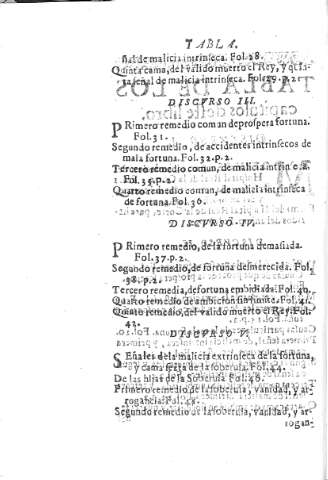 TABLA.
ñal de malicia intrinseca. Fol. 28.
Quinta cama, del valido muerto el Rey, y
ta señal de malicia intrinseca. Fol. 29. p. 2.
DISCVRSO III.
PRimero remedio comun de prospera fortuna.
Fol. 31.
Segundo remedio, de accidentes intrinsecos de
mala fortuna. Fol. 32. p. 2.
Tercero remedio comun, de malicia
Fol. 35. p. 2.
Quarto remedio comun, de malicia intrinseca
de fortuna. Fol. 36.
DISCVRSO IV.
PRimero remedio, de la fortuna demasiada.
Fol. 37. p. 2.
Segundo remedio, de fortuna desmerecida. Fol.
38. p. 2.
Tercero remedio, de fortuna embidiada. Fol. 40.
Quarto remedio de ambicion Fol. 41.
Quinto remedio, del valido muerto el Rey. Fol.
42.
DISCVRSO V.
SEñales de la malicia extrinseca de la fortuna,
y cama de la soberuia. Fol. 44.
De las hijas de la Soberuia Fol. 46.
Primero remedio de la soberuia, vanidad, y ar
rogancia. Fol. 48.
Segundo remedio de la soberuia, vanidad, y ar
rogan-